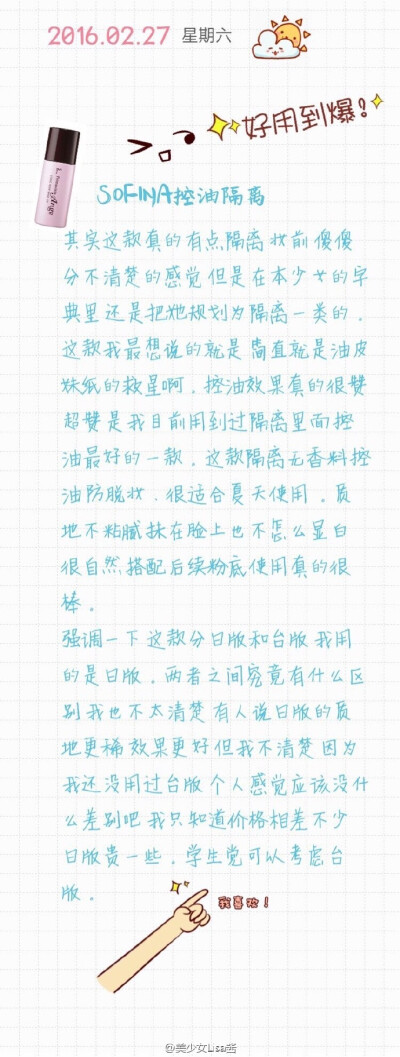 2016.02.27 星期六
好用到爆!
SOFINA控油隔离
其实这款真的有点隔离妆前傻傻
分不清楚的感觉但是在本少女的字
典里还是把她规划为隔离一类的.
这款我最想说的就是简直就是油皮
妹纸的救星啊.控油效果真的很赞
超赞是我目前用到过隔离里面控
油最好的一款.这款隔离无香料控
油防脱妆.很适合夏天使用.质
地不粘腻抹在脸上也不怎么显白
很自然搭配后续粉底使用真的很
棒.
强调一下这款分日版和台版我用
的是日版.两者之间究竟有什么区
别我也不太清楚有人说日版的质
地更稀效果更好但我不清楚因为
我还没用过台版个人感觉应该没什
么差别吧我只知道价格相差不少
日版贵一些.学生党可以考虑台
版.
我喜欢!
@美少女Lisa酱